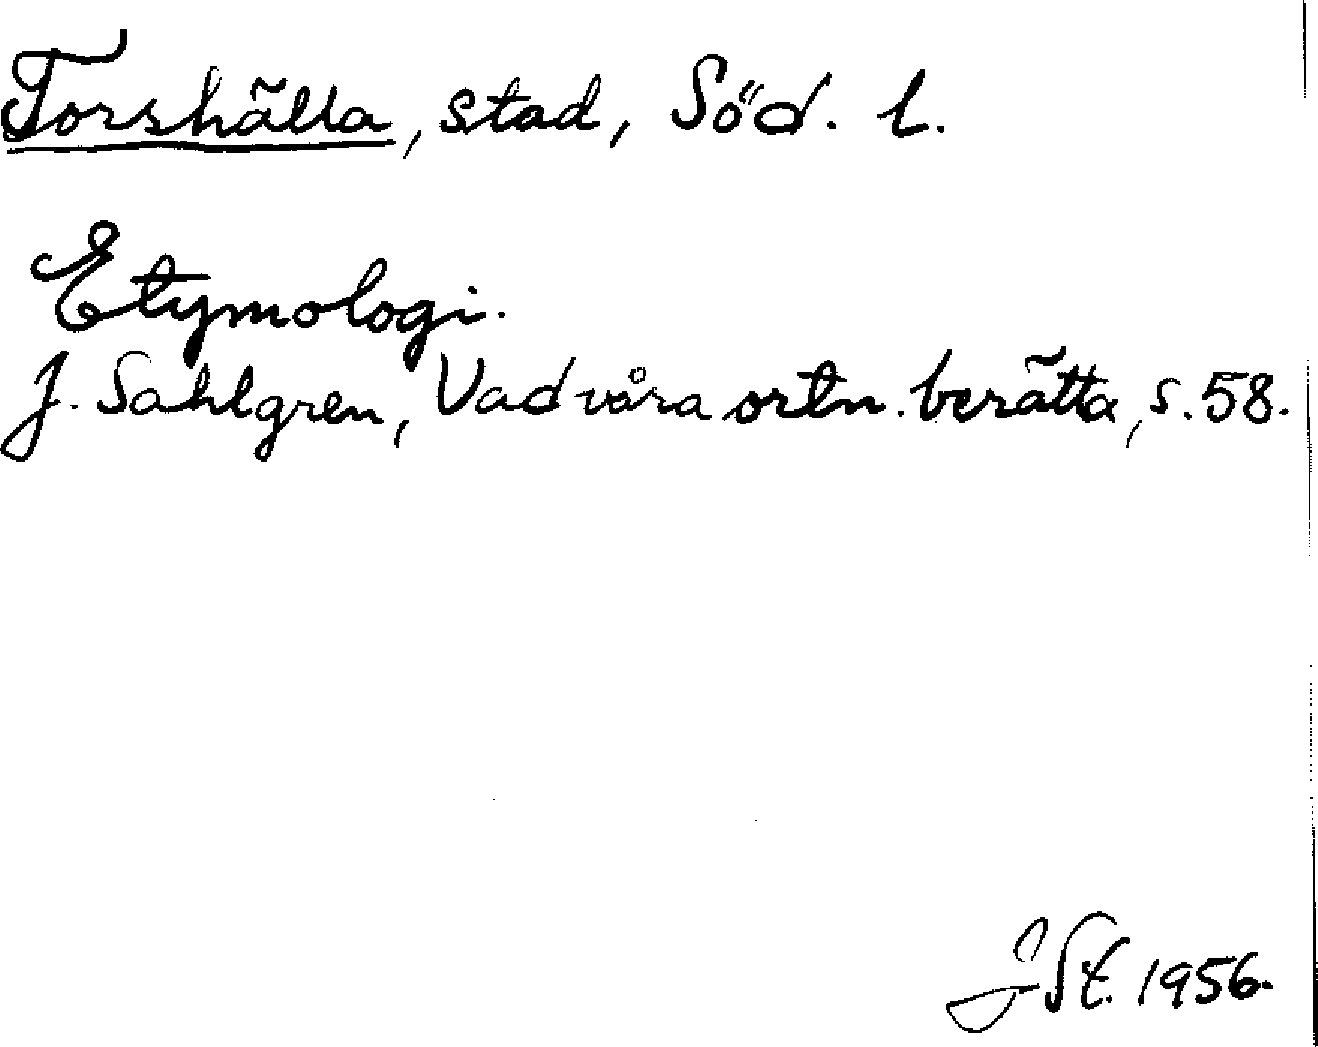 Torshälla, stad, Söd. l.
Etymologi.
J. Sahlgren, Vad våra ortn. berätta, s. 58.
JSt. 1956.